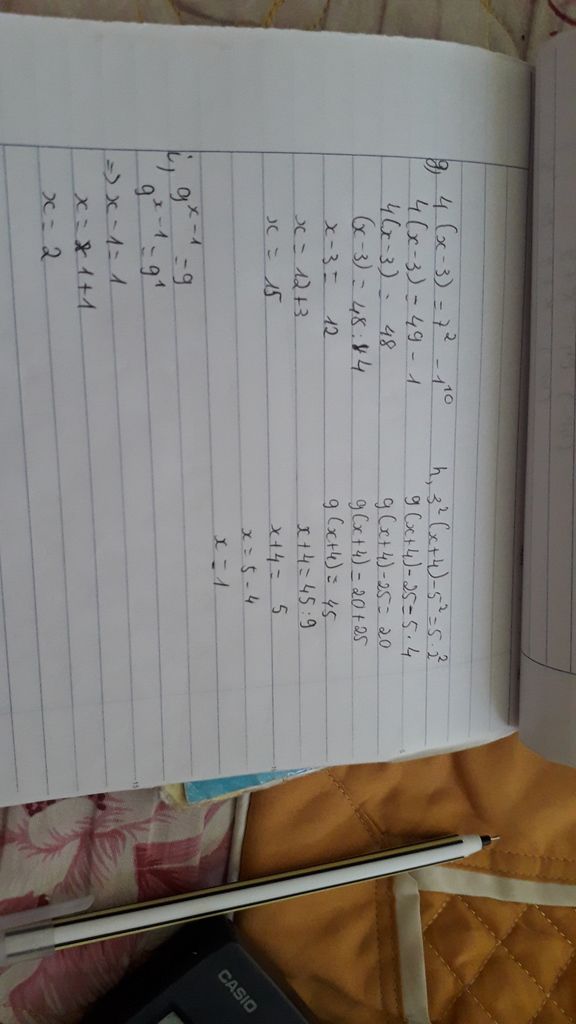 g, 4(x-3) = 7² - 1¹⁰
4(x-3) = 49 - 1
4(x-3) = 48
(x-3) = 48 : 4
x-3 = 12
x = 12+3
x = 15
h, 3²(x+4) - 5² = 5 . 2²
9(x+4) - 25 = 5 . 4
9(x+4) - 25 = 20
9(x+4) = 20+25
9(x+4) = 45
x+4 = 45 : 9
x+4 = 5
x = 5 - 4
x = 1
i, 9ˣ⁻¹ = 9
9ˣ⁻¹ = 9¹
=> x - 1 = 1
x = 1+1
x = 2
CASIO